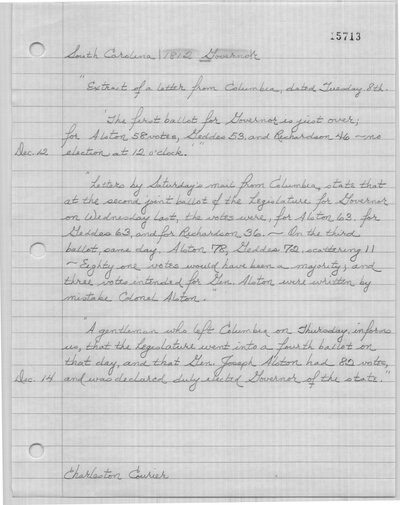 15713
South Carolina 1812 Governor
"Extract of a letter from Columbia, dated Tuesday 8th.
'The first ballot for Governor is just over;
for Alston 58 votes, Geddes 53, and Richardson 46 ~ no
Dec. 12 election at 12 o'clock.'"
"Letters by Saturday's mail from Columbia, state that
at the second joint ballot of the Legislature for Governor
on Wednesday last, the votes were, for Alston 63. for
Geddes 63, and for Richardson 36. ~ On the third
ballot, same day. Alston 78, Geddes 72. scattering 11
~ Eighty one votes would have been a majority; and
three votes intended for Gen. Alston were written by
mistake Colonel Alston."
"A gentleman who left Columbia on Thursday, informs
us, that the Legislature went into a fourth ballot on
that day, and that Gen. Joseph Alston had 82 votes,
Dec. 14 and was declared duly elected Governor of the state."
Charleston Courier